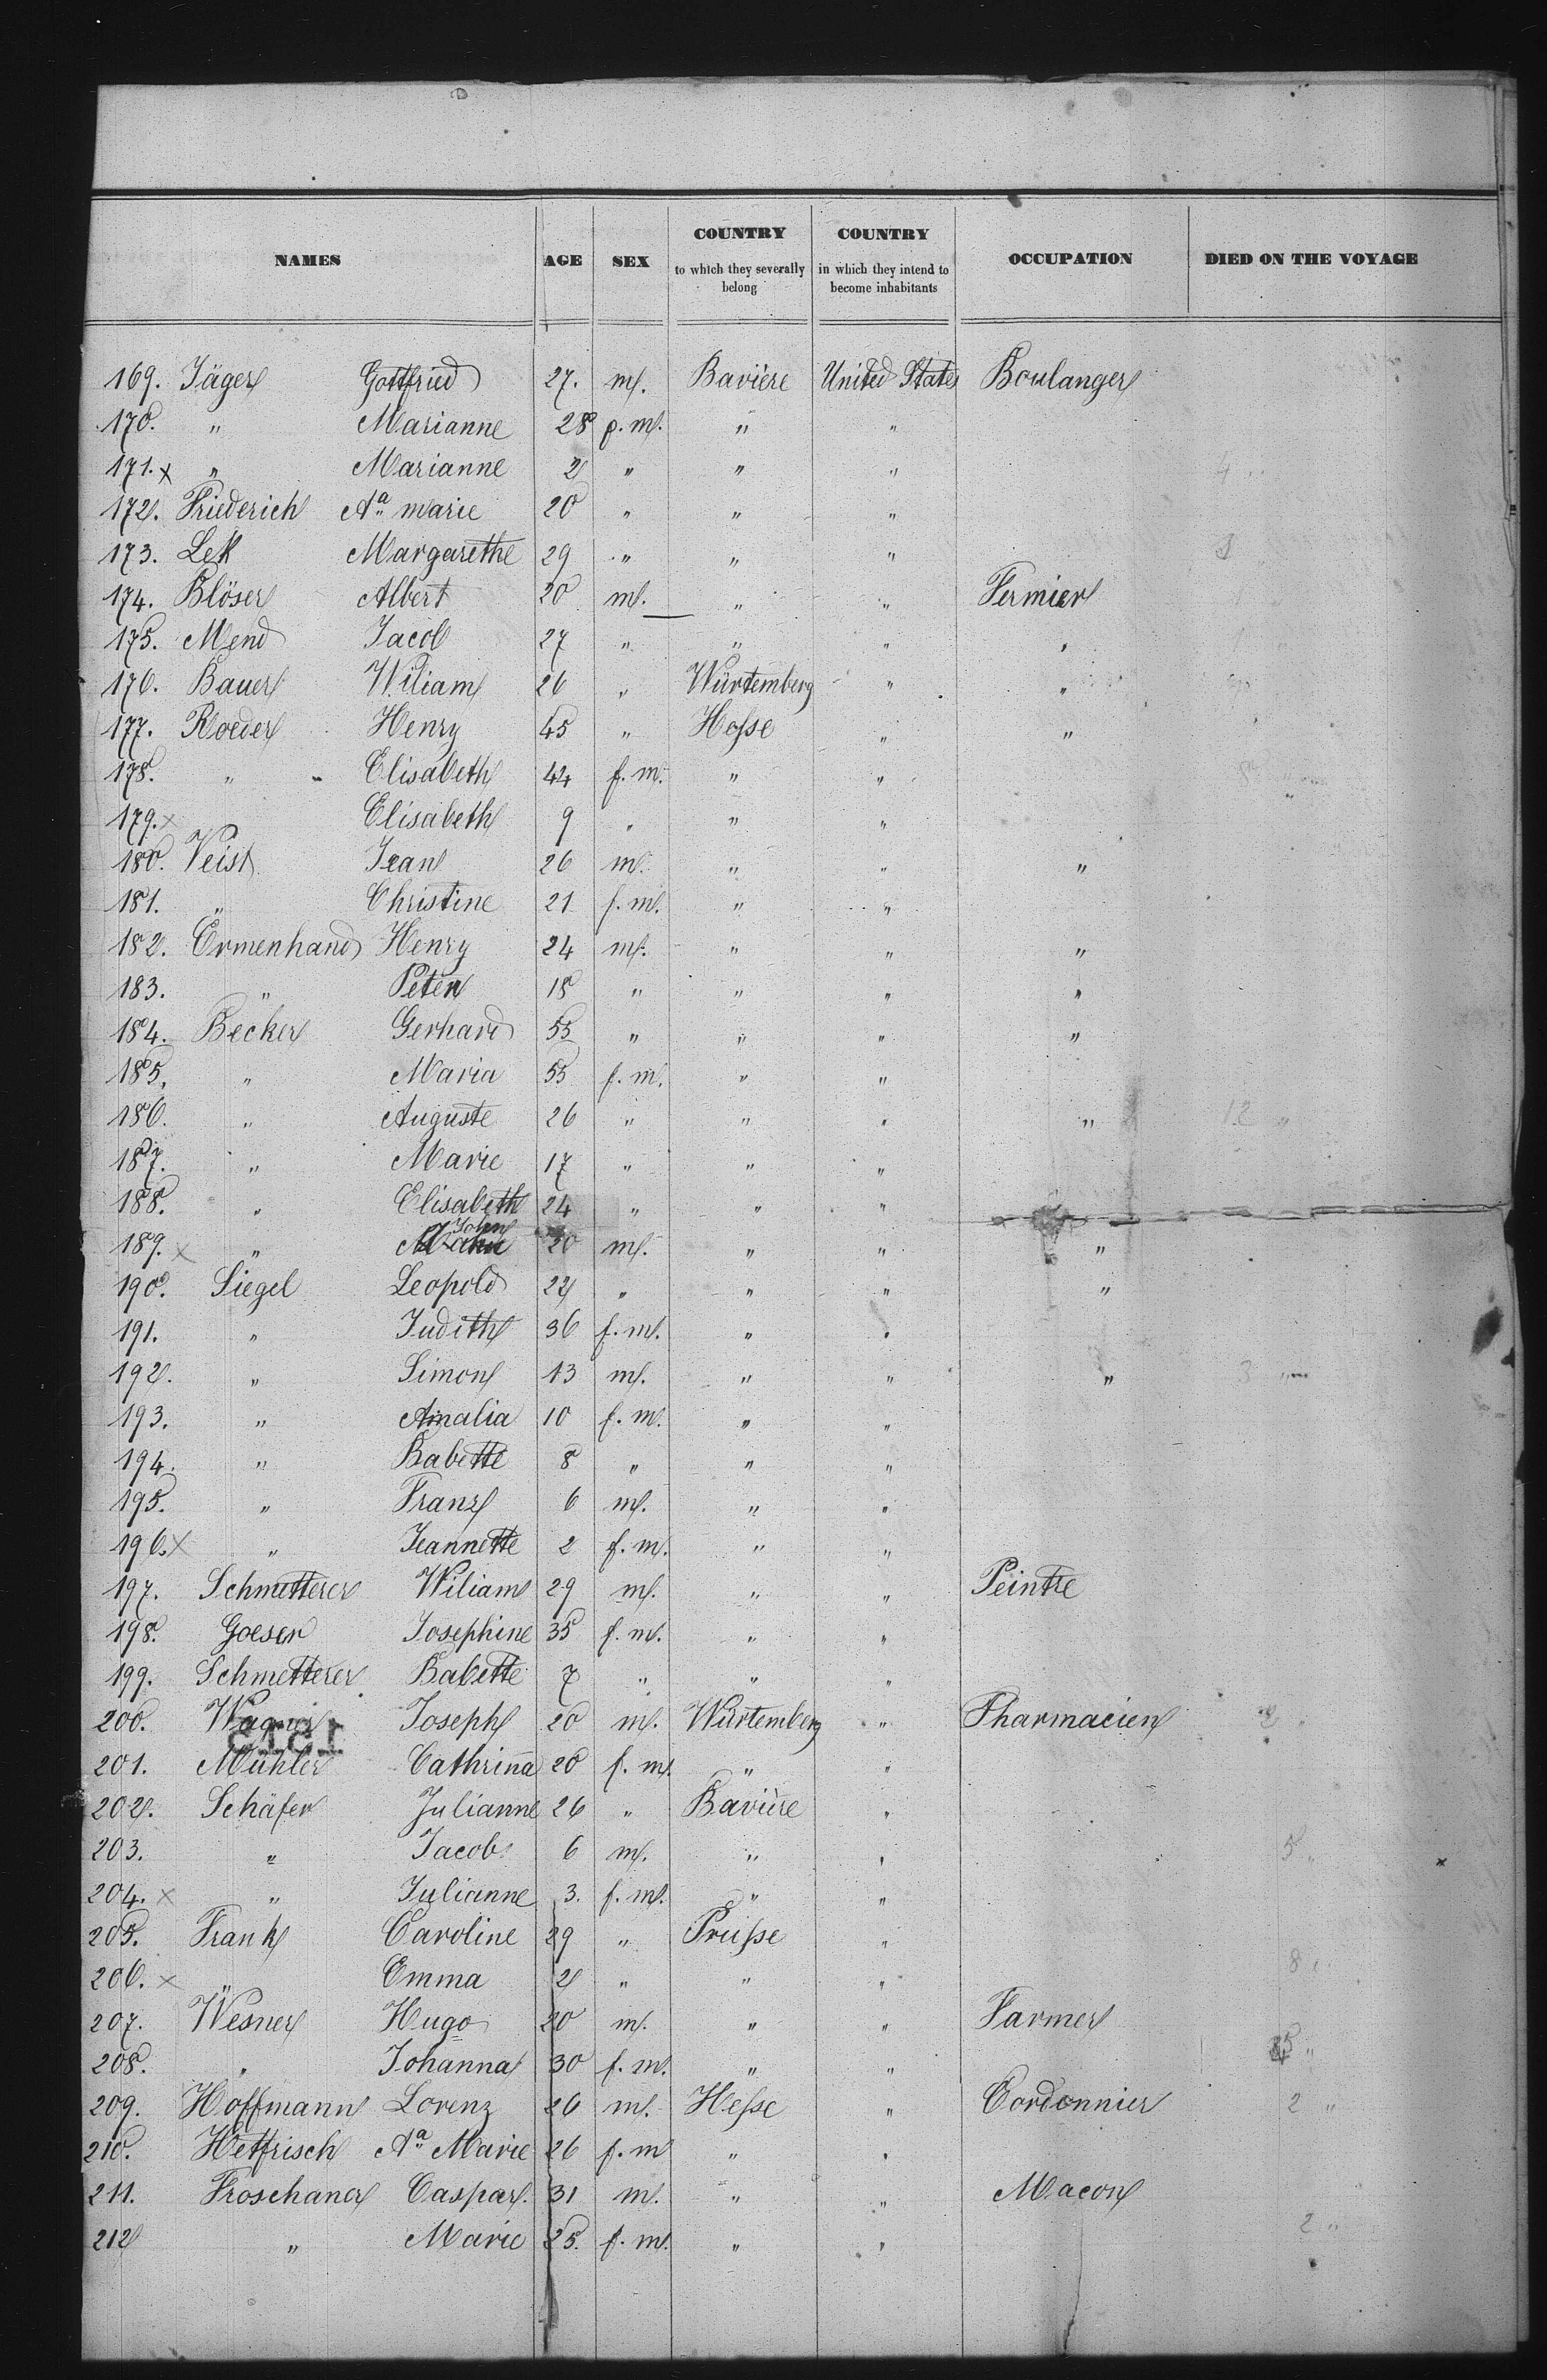 NAMES AGE SEX COUNTRY to which they severally belong COUNTRY in which they intend to become inhabitants OCCUPATION DIED ON THE VOYAGE
169. Jäger Gottfried 27. m. Bavière United States Boulanger
170. " Marianne 28 f. m. " "
171. x " Marianne 2 " " "
172. Friederich Aª marie 20 " " "
173. Lek Margarethe 29 " " "
174. Blöser Albert 20 m. " " Fermier
175. Mend Jacob 27 " " " "
176. Bauer Wiliam 26 " Würtemberg " "
177. Roeder Henry 45 " Hesse " "
178. " Elisabeth 44 f. m. " "
179. x Elisabeth 9 " " "
180. Veist Jean 26 m. " " "
181. " Christine 21 f. m. " "
182. Ermenhand Henry 24 m. " " "
183. " Peter 18 " " " "
184. Becker Gerhard 55 " " " "
185. " Maria 55 f. m. " "
186. " Auguste 26 " " " "
187. " Marie 17 " " "
188. " Elisabeth 24 " " "
189. x " John 20 m. " " "
190. Siegel Leopold 22 " " " "
191. " Judith 36 f. m. " "
192. " Simon 13 m. " " "
193. " Amalia 10 f. m. " "
194. " Babette 8 " " "
195. " Franz 6 m. " "
196. x " Jeannette 2 f. m. " "
197. Schmetterer Wiliam 29 m. " " Peintre
198. Goeser Josephine 35 f. m. " "
199. Schmetterer Babette 7 " " "
200. Joseph 20 m. Würtemberg " Pharmacien
201. Mühler Cathrina 20 f. m. " "
202. Schäfer Julianne 26 " Bavière "
203. " Jacob 6 m. " "
204. x " Julianne 3. f. m. " "
205. Frank Caroline 29 " Prusse "
206. x " Emma 2 " " "
207. Wesner Hugo 20 m. " " Farmer
208. " Johanna 30 f. m. " "
209. Hoffmann Lorenz 26 m. Hesse " Cordonnier
210. Hetfrisch Aª Marie 26 f. m " "
211. Froschaner Caspar. 31 m. " " Macon
212 " Marie 25. f. m. " "